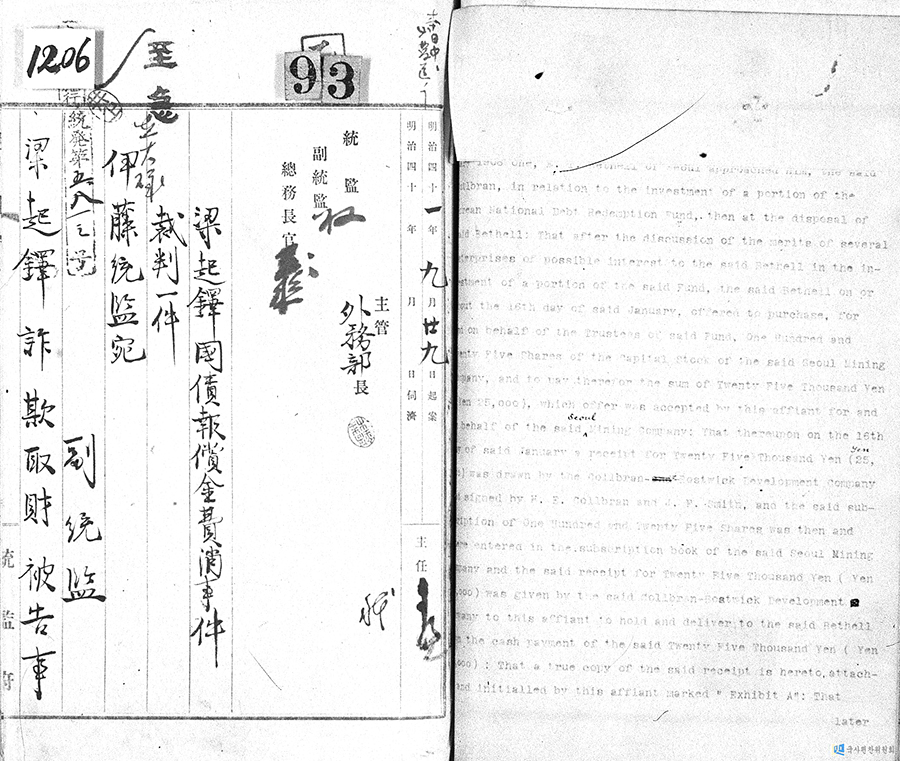 1206
至急
93
行
統発第五八一三号
明治四十一年九月廿九日起案
明治四十年 月 日伺濟
統監
副統監
總務長官
主管
外務部長
主任
梁起鐸國債報償金費消事件
裁判一件
伊藤統監宛
副統監
梁起鐸詐欺取財被告事
統監府
in relation to the investment of a portion of the
National Debt Redemption Fund, then at the disposal of
Bethell: That after the discussion of the merits of several
of possible interest to the said Bethell in the in-
of a portion of the said Fund, the said Bethell on or
the 16th day of said January, offered to purchase, for
on behalf of the Trustees of said Fund, One Hundred and
Five Shares of the Capital Stock of the said Seoul Mining
and to pay therefor the sum of Twenty Five Thousand Yen
which offer was accepted by this affiant for and
behalf of the said Seoul Mining Company: That thereupon on the 16th
of said January a receipt for Twenty Five Thousand Yen (Yen 25,
was drawn by the Collbran-Bostwick Development Company
signed by H. E. Collbran and J. F. Smith, and the said sub-
of One Hundred and Twenty Five Shares was then and
entered in the subscription book of the said Seoul Mining
and the said receipt for Twenty Five Thousand Yen ( Yen
was given by the said Collbran-Bostwick Development
to this affiant to hold and deliver to the said Bethell
the cash payment of the said Twenty Five Thousand Yen ( Yen
: That a true copy of the said receipt is hereto attach-
and initialled by this affiant marked " Exhibit A": That
later
국사편찬위원회